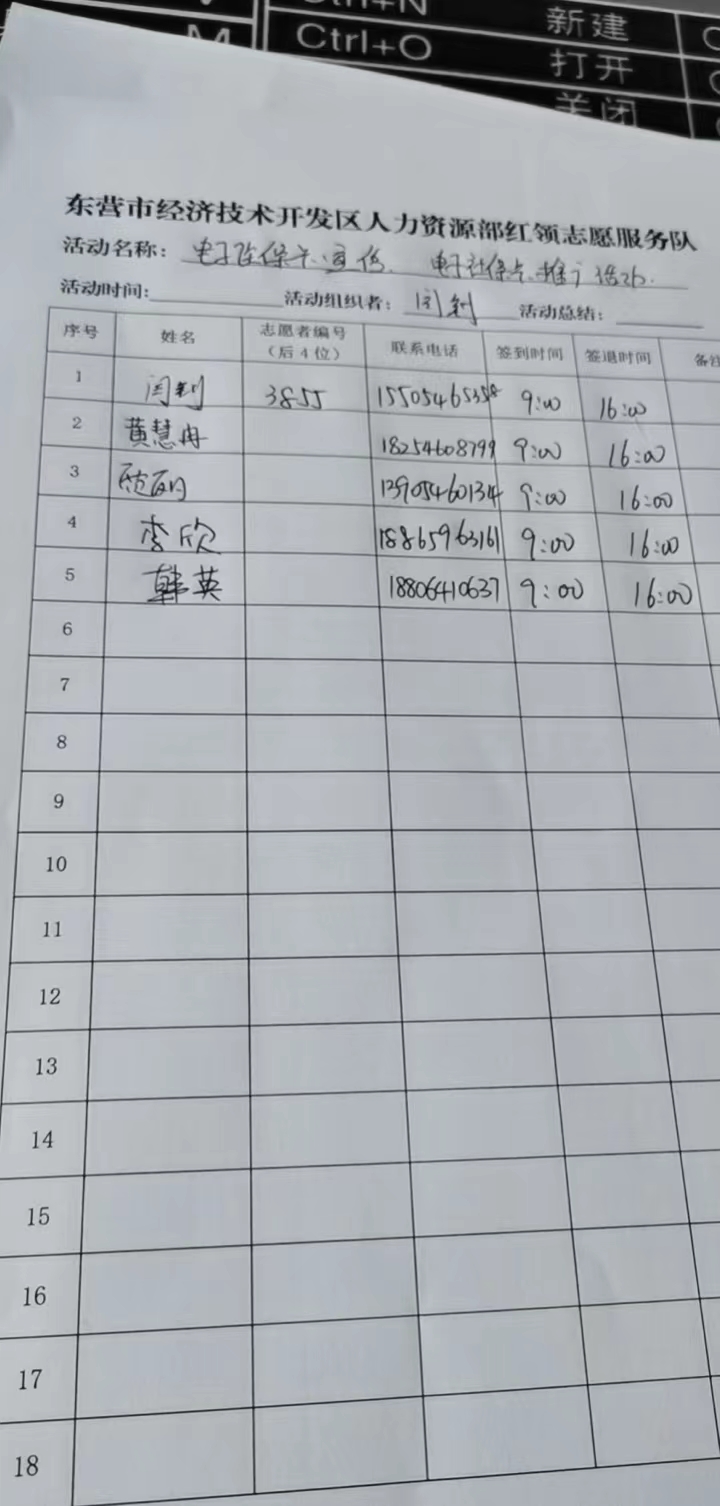 Ctrl+N 新建
Ctrl+O 打开
关闭
东营市经济技术开发区人力资源部红领志愿服务队
活动名称: 电子社保卡宣传. 电子社保卡推广活动.
活动时间: 活动组织者: 闫利 活动总结:
序号 姓名 志愿者编号(后4位) 联系电话 签到时间 签退时间 备注
1 闫利 3855 15505465358 9:00 16:00
2 黄慧冉 18254608799 9:00 16:00
3 13905460134 9:00 16:00
4 李欣 18865963161 9:00 16:00
5 韩英 18806410637 9:00 16:00
6
7
8
9
10
11
12
13
14
15
16
17
18